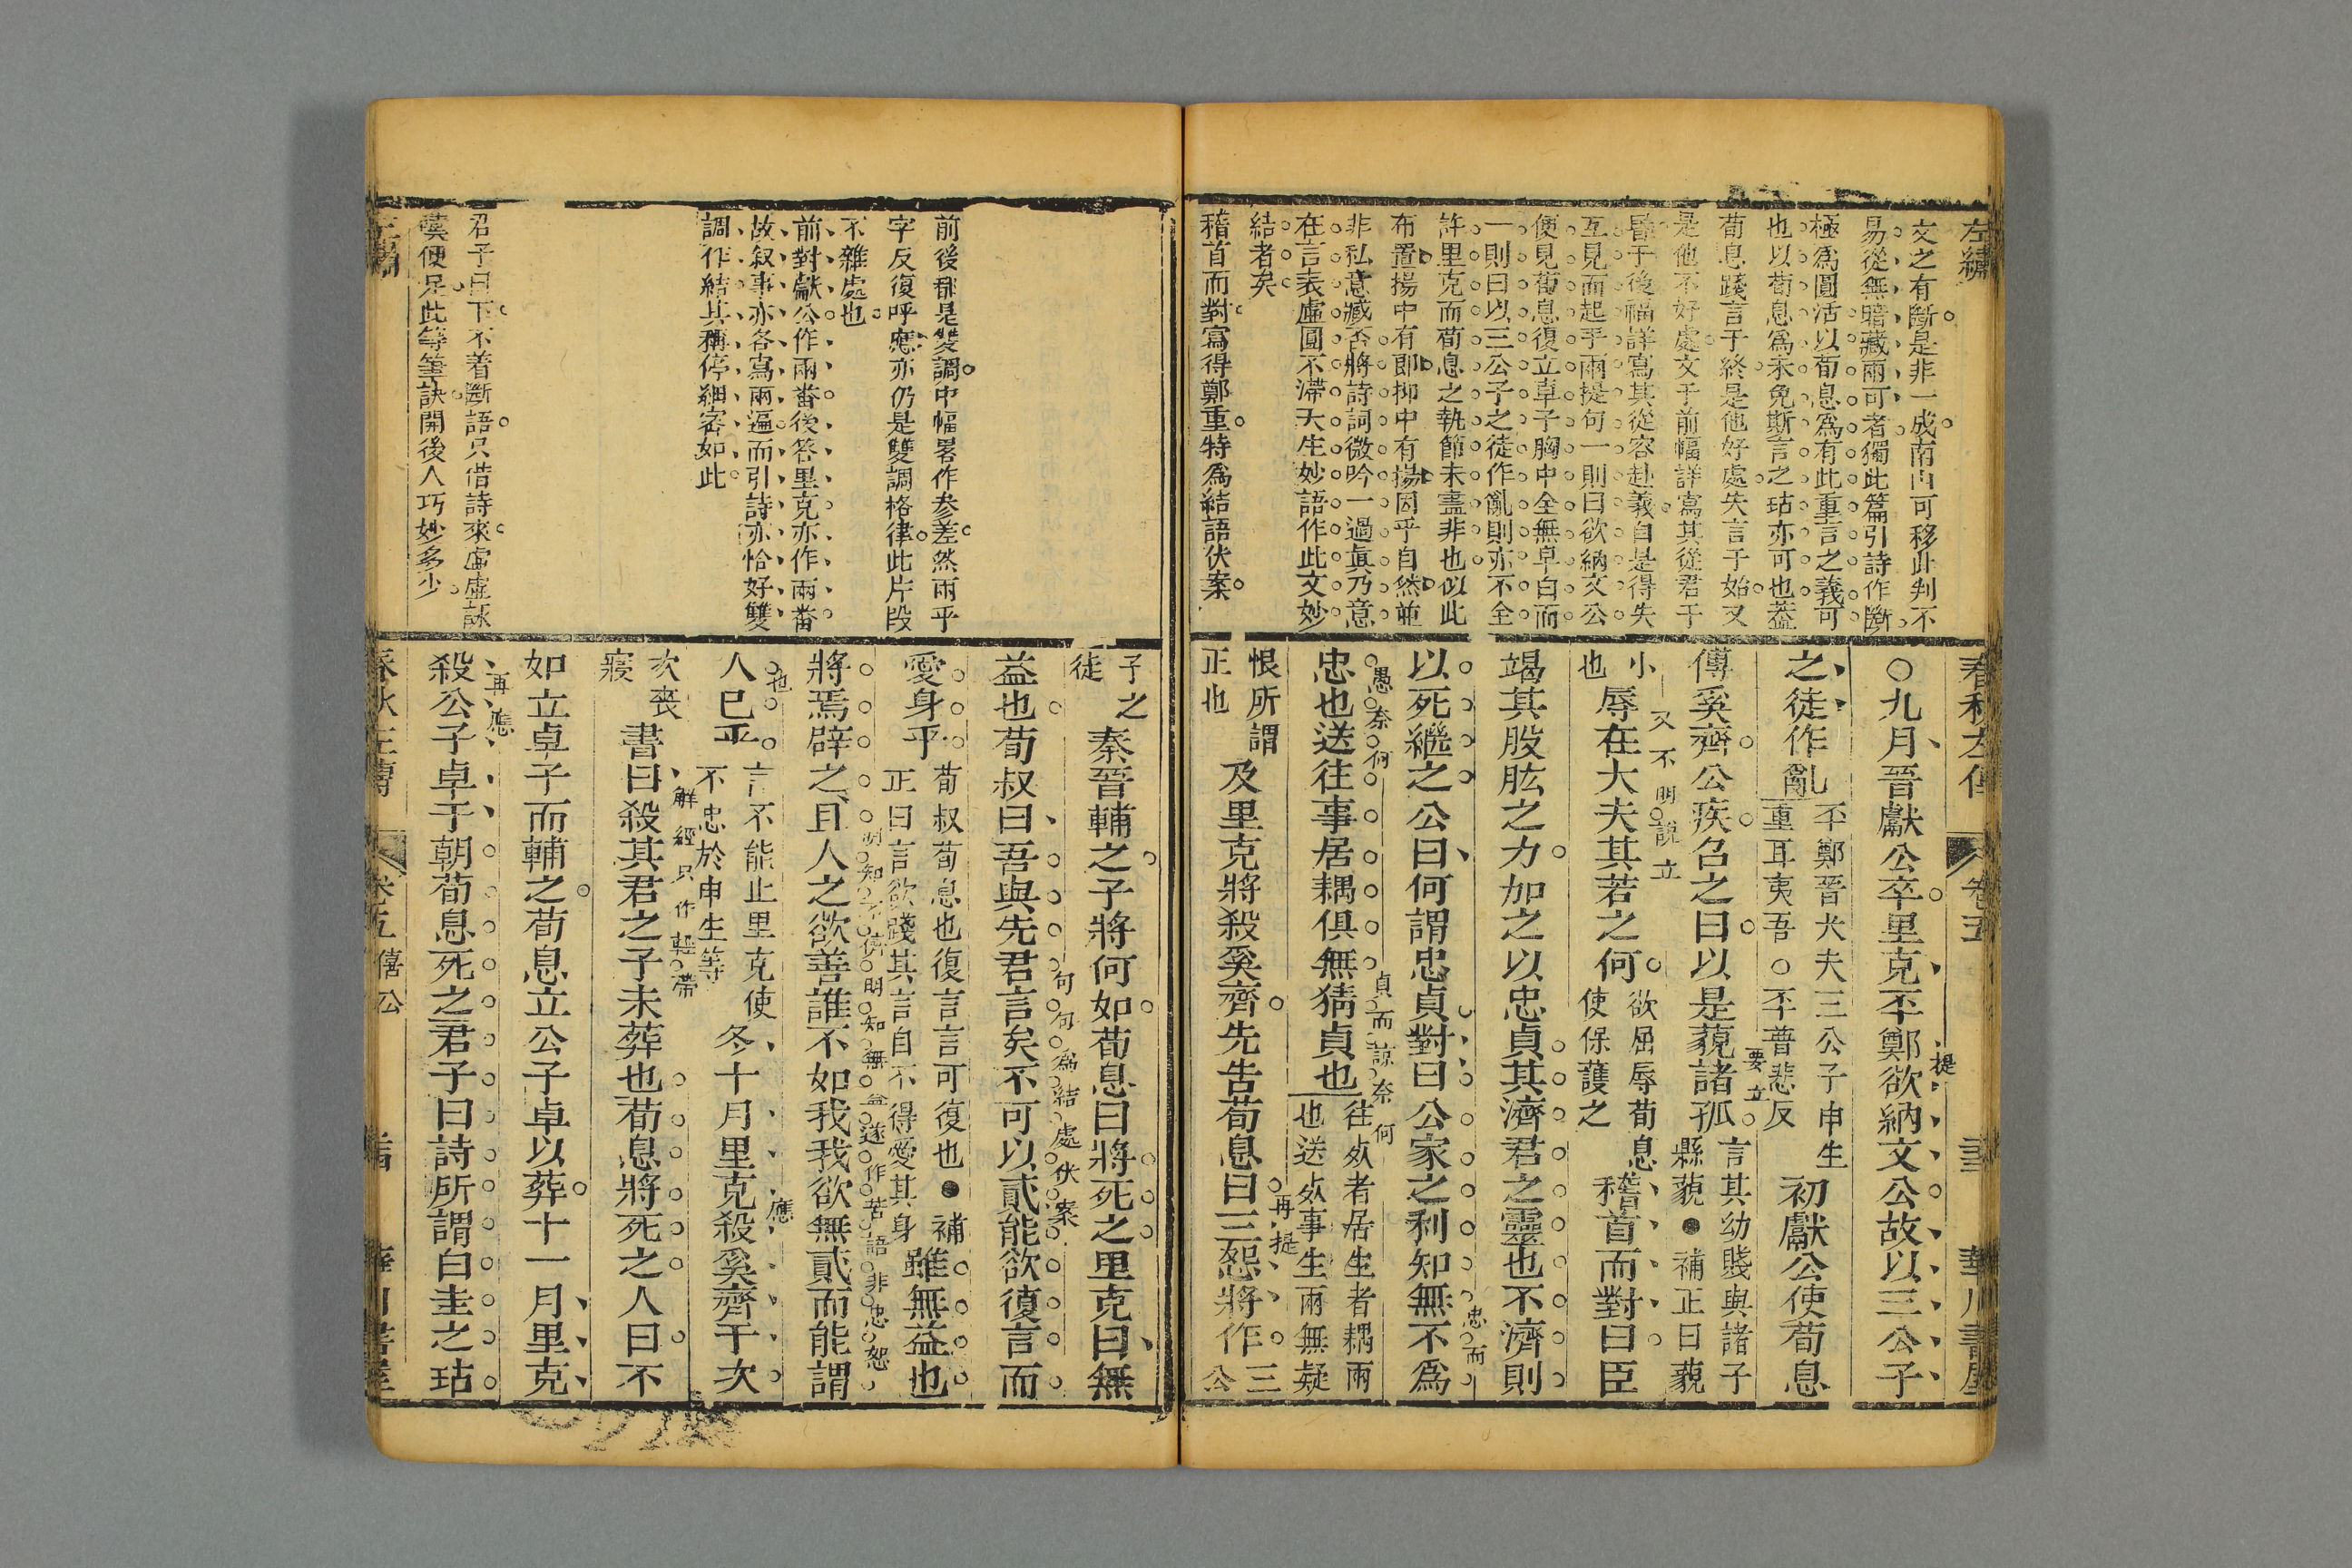 左繡
文之有斷是非一成南山可移此判不
易從無暗藏兩可者獨此篇引詩作斷
極爲圓活以荀息爲有此重言之義可
也以荀息爲未免斯言之玷亦可也蓋
荀息踐言于終是他好處失言于始又
是他不好處文于前幅詳寫其從君于
昏于後幅詳寫其從容赴義自是得失
互見而起手兩提句一則曰欲納文公
便見荀息復立卓子胸中全無卓白而
一則曰以三公子之徒作亂則亦不全
許里克而荀息之執節未盡非也似此
布置揚中有卽抑中有揚因乎自然並
非私意臧否將詩詞微吟一過眞乃意
在言表虛圓不滯天生妙語作此文妙
結者矣
稽首而對寫得鄭重特爲結語伏案
春秋左傳 卷五 華川書屋
○九月晉獻公卒里克丕鄭欲納文公故以三公子
提
之徒作亂
丕鄭晉大夫三公子申生
重耳夷吾○丕普悲反
初獻公使荀息
傅奚齊公疾召之曰以是藐諸孤
要立
言其幼賤與諸子
縣藐●補正曰藐
小
也
又不明說立
辱在大夫其若之何
欲屈辱荀息
使保護之
稽首而對曰臣
竭其股肱之力加之以忠貞其濟君之靈也不濟則
以死繼之公曰何謂忠貞對曰公家之利知無不爲
忠而
愚奈何
忠也送往事居耦俱無猜貞也
貞而諒奈何
往死者居生者耦兩
也送死事生兩無疑
恨所謂
正也
及里克將殺奚齊先告荀息曰三怨將作
再提
三
公
前後都是雙調中幅畧作參差然兩乎
字反復呼應亦仍是雙調格律此片段
不雜處也
前對獻公作兩番後答里克亦作兩番
故叙事亦各寫兩遍而引詩亦恰好雙
調作結其稱停細密如此
君子曰下不着斷語只借詩來虛虛詠
歎便足此等筆訣開後人巧妙多少
子之
徒
秦晉輔之子將何如荀息曰將死之里克曰無
益也荀叔曰吾與先君言矣不可以貳能欲復言而
句句爲結處伏案
愛身乎
荀叔荀息也復言言可復也●補
正曰言欲踐其言自不得愛其身
雖無益也
將焉辟之且人之欲善誰不如我我欲無貳而能謂
明知不濟明知無益遂作苦語非忠恕
也
人已乎
言不能止里克使
不忠於申生等
冬十月里克殺奚齊于次
應
次喪
寢
書曰殺其君之子未葬也荀息將死之人曰不
解經只作輕帶
如立卓子而輔之荀息立公子卓以葬十一月里克
殺公子卓于朝荀息死之君子曰詩所謂白圭之玷
再應
卷五 僖公